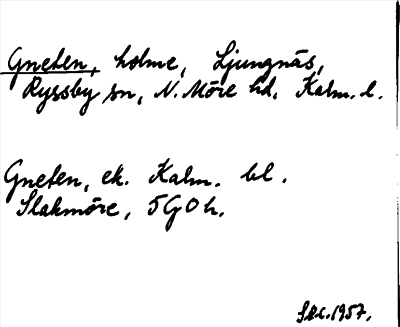 Gneten, holme, Ljungnäs,
Ryssby sn, N. Möre hd, Kalm. l.
Gneten, ek. Kalm. bl.
Slakmöre, 5G0h.
1957.